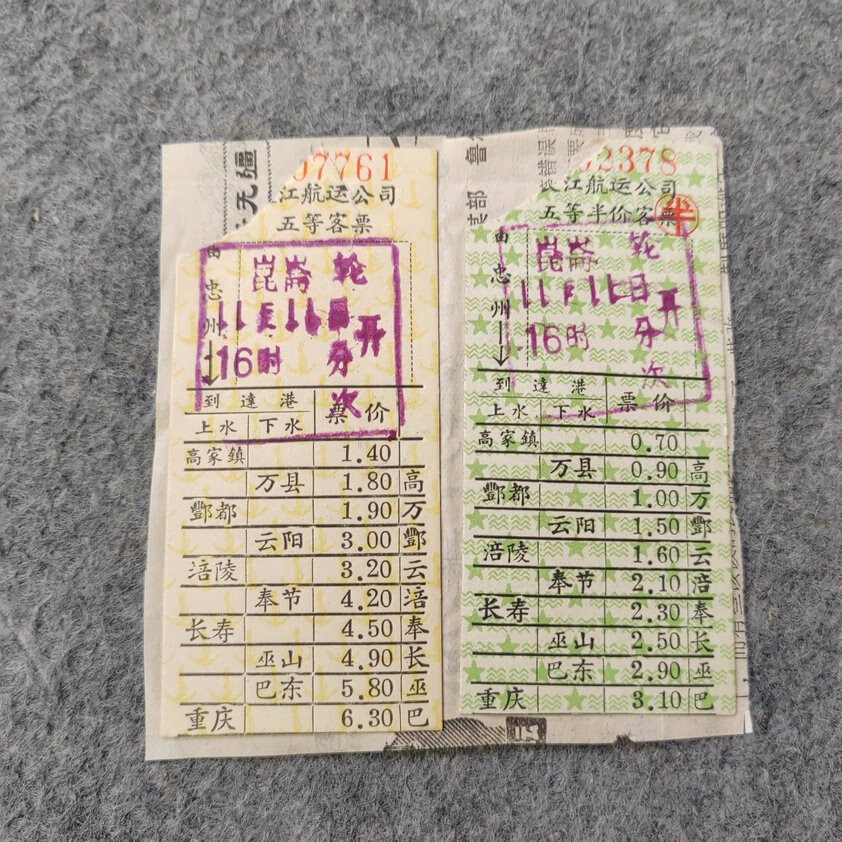 07761
江航运公司
五等客票
由忠州
崑崙轮
11月11日开
16时分
次
到達港
票价
上水 下水
高家鎮 1.40
万县 1.80 高
酆都 1.90 万
云阳 3.00 酆
涪陵 3.20 云
奉节 4.20 涪
长寿 4.50 奉
巫山 4.90 长
巴东 5.80 巫
重庆 6.30 巴
2378
江航运公司
五等半价客票
半
由忠州
崑崙轮
11月11日开
16时分
次
到達港
票价
上水 下水
高家鎮 0.70
万县 0.90 高
酆都 1.00 万
云阳 1.50 酆
涪陵 1.60 云
奉节 2.10 涪
长寿 2.30 奉
巫山 2.50 长
巴东 2.90 巫
重庆 3.10 巴